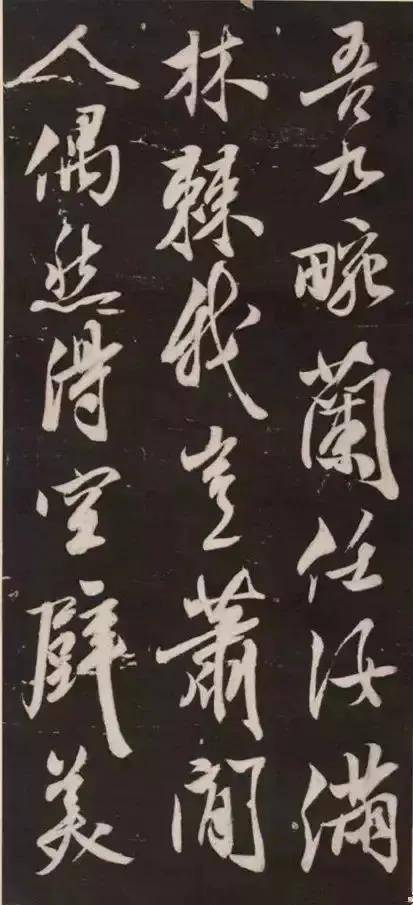 吾九畹蘭任汝滿
林棘我豈蕭閒
人偶然得空辟美